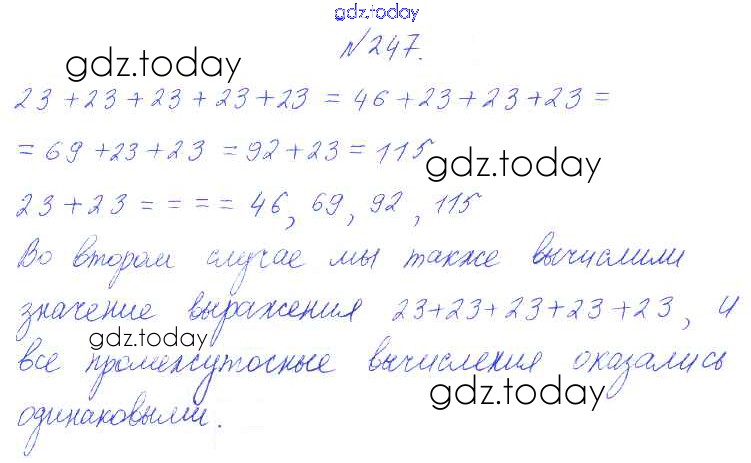 gdz.today
№247.
gdz.today
23+23+23+23+23=46+23+23+23=
=69+23+23=92+23=115
gdz.today
23+23==== 46, 69, 92, 115
gdz.today
Во втором случае мы также вычислили
значение выражения 23+23+23+23+23, и
gdz.today
все промежуточные вычисления оказались
gdz.today
одинаковыми.